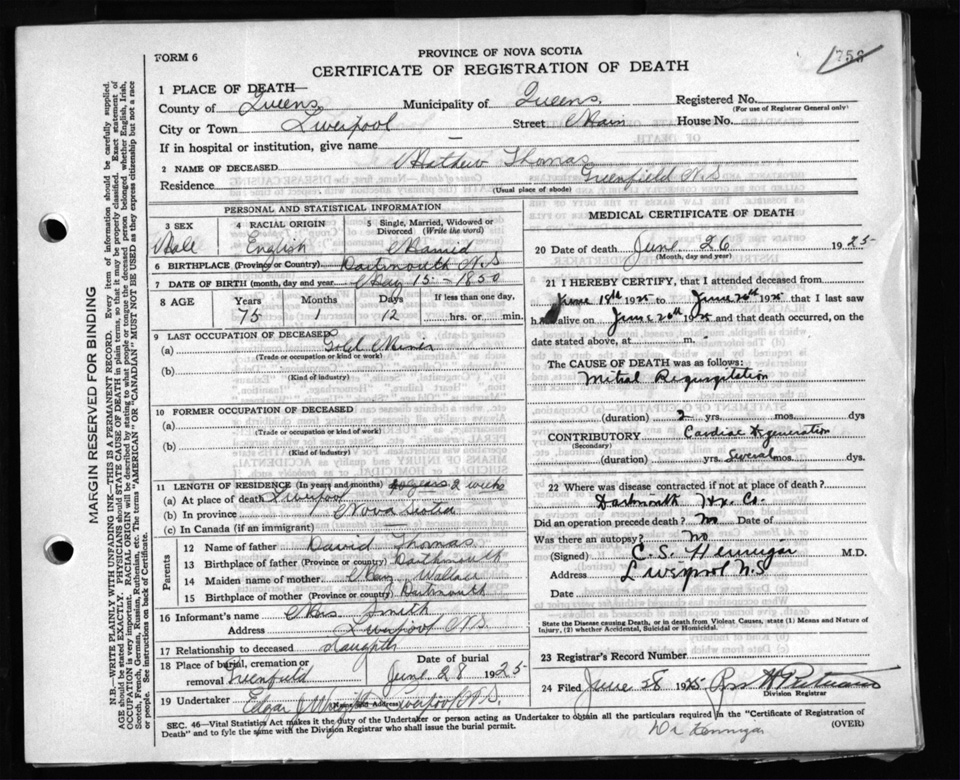 FORM 6
PROVINCE OF NOVA SCOTIA
CERTIFICATE OF REGISTRATION OF DEATH
758
MARGIN RESERVED FOR BINDING
N.B.—WRITE PLAINLY WITH UNFADING INK—THIS IS A PERMANENT RECORD. Every item of information should be carefully supplied.
AGE should be stated EXACTLY. PHYSICIANS should STATE CAUSE OF DEATH in plain terms, so that it may be properly classified. Exact statement of
OCCUPATION is very important. RACIAL ORIGIN will be described by stating to what people or tongue the deceased person belonged whether English, Irish,
Scotch, French, German, Russian, Ruthenian, etc. The terms "AMERICAN" OR "CANADIAN" MUST NOT BE USED as they express citizenship but not a race
or people. See instructions on back of Certificate.
1 PLACE OF DEATH—
County of Queens Municipality of Queens Registered No.
(For use of Registrar General only)
City or Town Liverpool Street Main House No.
If in hospital or institution, give name —
2 NAME OF DECEASED Mathew Thomas
Residence Greenfield N.S
(Usual place of abode)
PERSONAL AND STATISTICAL INFORMATION
3 SEX 4 RACIAL ORIGIN 5 Single, Married, Widowed or Divorced (Write the word)
Male English Married
6 BIRTHPLACE (Province or Country) Dartmouth N.S
7 DATE OF BIRTH (month, day and year) May 15 - 1850
8 AGE Years Months Days If less than one day,
75 1 12 hrs. or min.
9 LAST OCCUPATION OF DECEASED
(a) Gold Miner
(Trade or occupation or kind or work)
(b)
(Kind of industry)
10 FORMER OCCUPATION OF DECEASED
(a)
(Trade or occupation or kind of work)
(b)
(Kind of industry)
11 LENGTH OF RESIDENCE (In years and months) 2 weeks
(a) At place of death Liverpool
(b) In province Nova Scotia
(c) In Canada (if an immigrant) —
Parents
12 Name of father David Thomas
13 Birthplace of father (Province or country) Dartmouth
14 Maiden name of mother Mary Wallace
15 Birthplace of mother (Province or country) Dartmouth
16 Informant's name Mrs Smith
Address Liverpool N.S.
17 Relationship to deceased daughter
18 Place of burial, cremation or removal Greenfield Date of burial June 28 1925
19 Undertaker Edgar J Wright Address Liverpool N.S.
MEDICAL CERTIFICATE OF DEATH
20 Date of death June 26 1925
(Month, day and year)
21 I HEREBY CERTIFY, that I attended deceased from
June 18th 1925 to June 26th 1925 that I last saw
h alive on June 26th 1925 and that death occurred, on the
date stated above, at m.
The CAUSE OF DEATH was as follows:
Mitral Regurgitation
(duration) 2 yrs. mos. dys
CONTRIBUTORY Cardiac Degeneration
(Secondary)
(duration) yrs. Several mos. dys.
22 Where was disease contracted if not at place of death?
Dartmouth Hx. Co.
Did an operation precede death? No Date of
Was there an autopsy? No
(Signed) C. S. Hennigar M.D.
Address Liverpool N.S
Date
State the Disease causing Death, or in death from Violent Causes, state (1) Means and Nature of Injury, (2) whether Accidental, Suicidal or Homicidal.
23 Registrar's Record Number
24 Filed June 28 1925
Division Registrar
SEC. 46—Vital Statistics Act makes it the duty of the Undertaker or person acting as Undertaker to obtain all the particulars required in the "Certificate of Registration of
Death" and to fyle the same with the Division Registrar who shall issue the burial permit. (OVER)